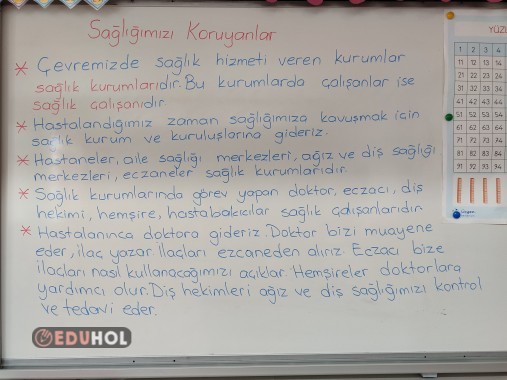 Sağlığımızı Koruyanlar
* Çevremizde sağlık hizmeti veren kurumlar
sağlık kurumlarıdır. Bu kurumlarda çalışanlar ise
sağlık çalışanıdır
* Hastalandığımız zaman sağlığımıza kavuşmak için
sağlık kurum ve kuruluşlarına gideriz.
* Hastaneler, aile sağlığı merkezleri, ağız ve diş sağlığı
merkezleri, eczaneler sağlık kurumlarıdır.
* Sağlık kurumlarında görev yapan doktor, eczacı, diş
hekimi, hemşire, hastabakıcılar sağlık çalışanlarıdır
* Hastalanınca doktora gideriz. Doktor bizi muayene
eder, ilaç yazar. İlaçları eczaneden alırız. Eczacı bize
ilaçları nasıl kullanacağımızı açıklar. Hemşireler doktorlara
yardımcı olur. Diş hekimleri ağız ve diş sağlığımızı kontrol
ve tedavi eder.
EDUHOL
YÜZL
1 2 3 4
11 12 13 14
21 22 23 24
31 32 33 34
41 42 43 44
51 52 53 54
61 62 63 64
71 72 73 74
81 82 83 84
91 92 93 94